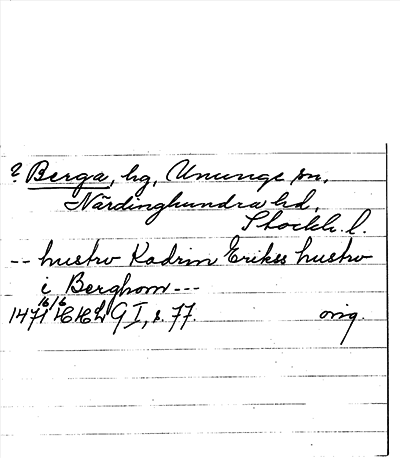 ? Berga, hg, Ununge sn,
Närdinghundra hd,
Stockh. l.
-- hustro Kadrin Erikss hustro
i Berghom ---
1471 16/6 HH G I, s. 77. orig.